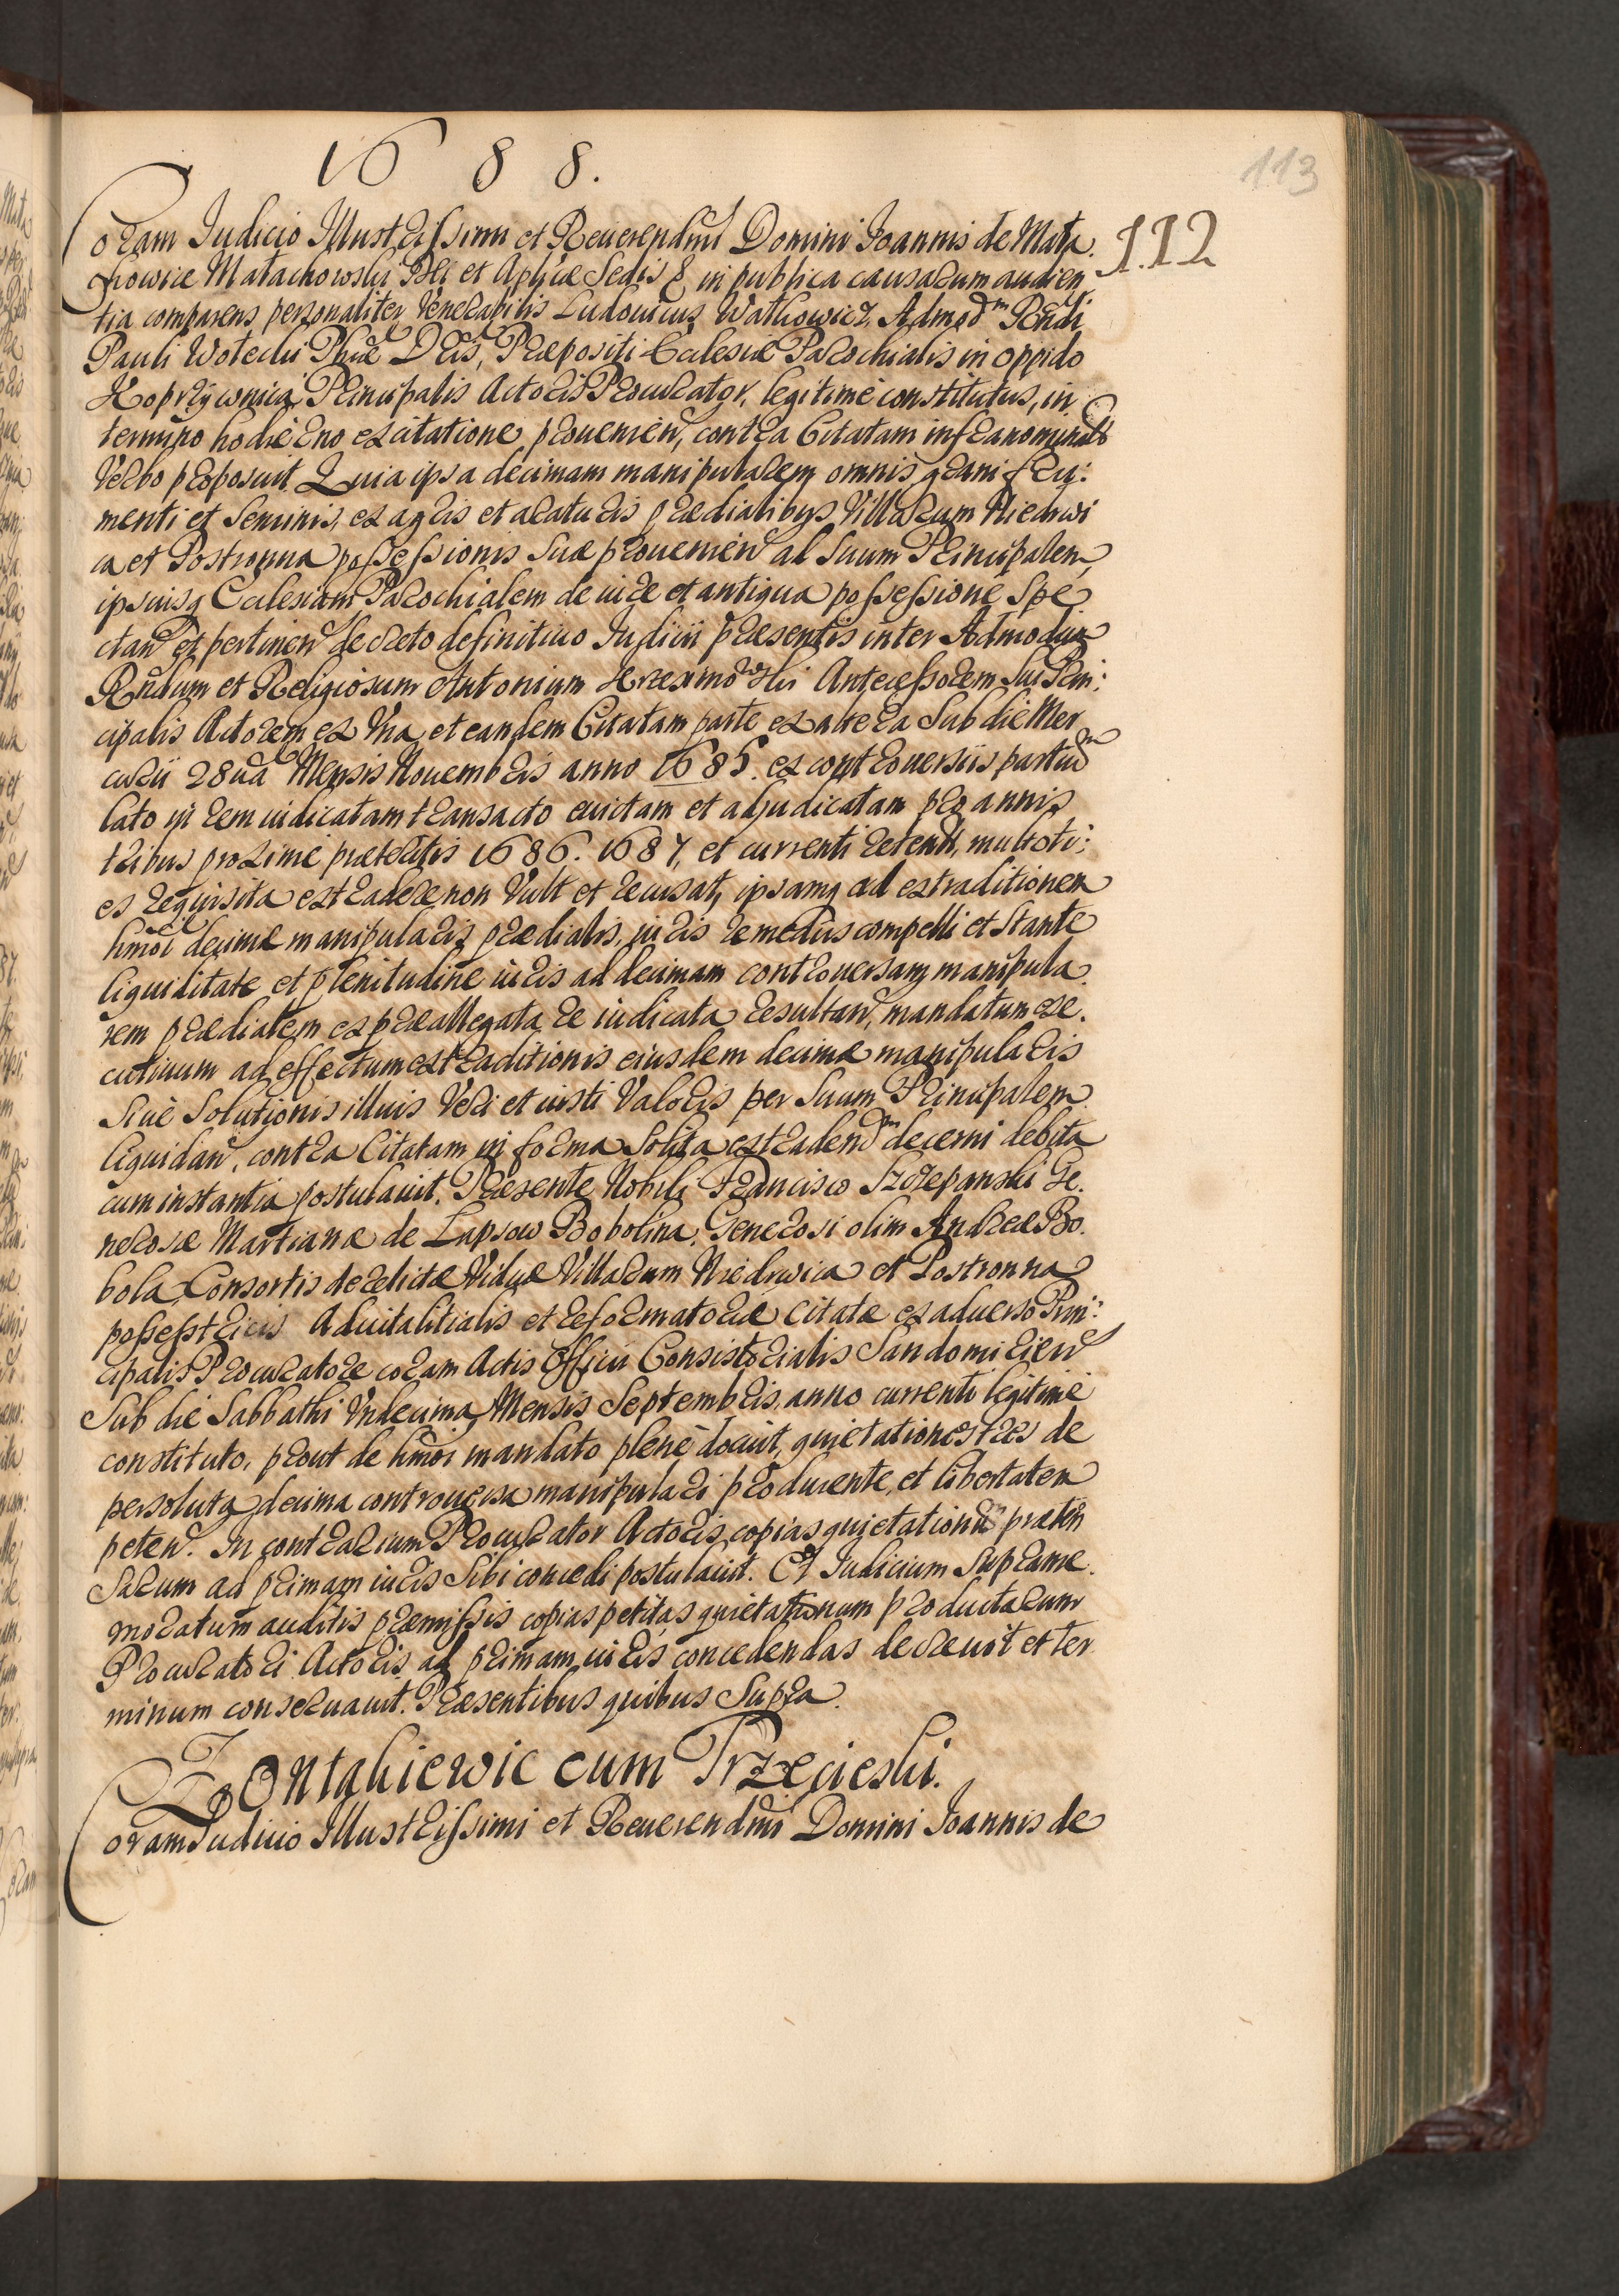 1688.
113
112
Coram Judicio Illustrissimi et Reuerendmi Domini Joannis de Mała
chowice Małachowski Dei et Aplicæ Sedis & in publica causarum audien
tia comparens personaliter Venerabilis Ludouicus Wathowicz Admodm Rndi
Pauli Wotecki Phiæ Dris, Præpositi Ecclesiæ Parochialis in oppido
Koprzywnica Principalis Actoris Procurator, legitimè constitutus, in
termino hodierno ex citatione prouenien, contra Citatam infranominatã
Verbo proposuit. Quia ipsa decimam manipularem omnis grani fru:
menti et Seminis, ex agris et araturis prædialibus Villarum Niedrwi
ca et Postronna possessionis Suæ prouenien ad Suum Principalem,
ipsiusq Ecclesiam Parochialem de iure et antiqua possessione Spe
ctan et pertinen decreto definitiuo Judicii præsentis inter Admodum
Rndum et Religiosum Antonium Krzesimowski Antecessorem Sui Prin:
cipalis Actorem ex Vna, et eandem Citatam parte ex altera Sub die Mer
curii 28ua Mensis Nouembris anno 1685. ex controuersiis partium
lato in rem iudicatam transacto euictam et adjudicatam pro annis
tribus proximè præteritis 1686. 1687, et currenti retentã, multoti:
es requisita extradere non Vult et recusat, ipsamq ad extraditionem
hmoi decimæ manipularis prædialis, iuris remediis compelli et Stante
liquiditate et plenitudine iuris ad decimam controuersam manipula
rem prædialem ex præallegata re iudicata resultan, mandatum exe.
cutiuum ad effectum extraditionis eiusdem decimæ manipularis
Siuè Solutionis illius Veri et iusti Valoris per Suum Principalem
liquidan, contra Citatam in forma Solita extradendm decerni debita
cum instantia postulauit. Præsente Nobili Francisco Szczepanski Ge.
nerosæ Martianæ de Lapsow Bobolina, Generosi olim Andreæ Bo.
bola Consortis derelictæ Viduæ Villarum Niedrwica et Postronna
possestricis Aduitalitialis et reformatoriæ Citatæ ex aduerso Prin:
cipalis Procuratore coram Actis Officii Consistorialis Sandomirien
Sub die Sabbathi Vndecima Mensis Septembris anno currenti legitimè
constituto, prout de hmoi mandato plenè docuit, quietationes tres de
persoluta decima controuersa manipulari producente, et libertatem
peten. In contrarium Procurator Actoris copias quietationum præten
sarum ad primam iuris Sibi concedi postulauit. Et Judicium Suprame.
moratum auditis præmissis copias petitas quietationum productarum
Procuratori Actoris ad primam iuris concedendas decreuit et ter
minum conseruauit. Præsentibus quibus Supra.
Zontakiewic cum Trzecieski.
Coram Judicio Illustrissimi et Reuerendmi Domini Joannis de